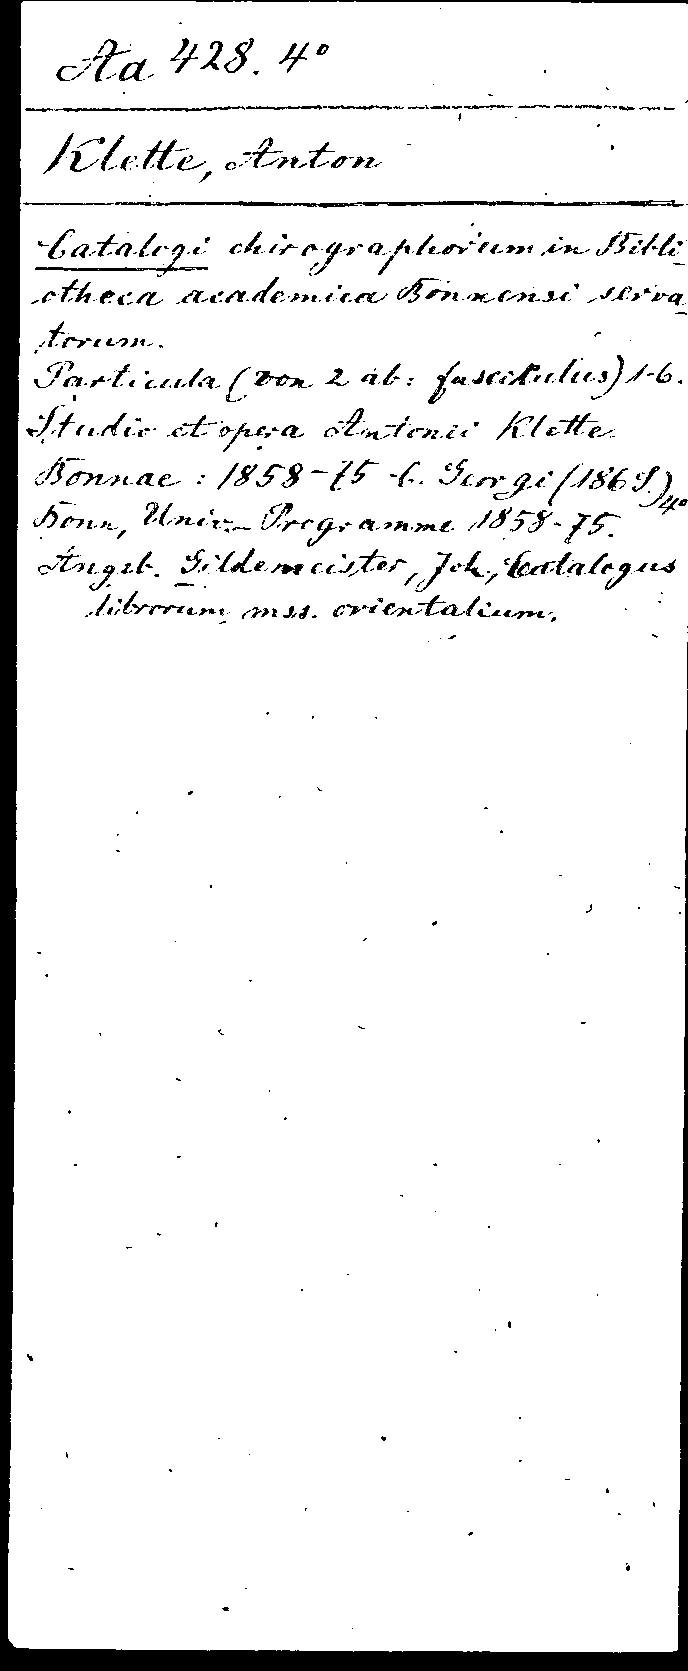 Aa 428. 4°
Klette, Anton
Catalogi chirographorum in Bibli-
otheca academica Bonnensi serva-
torum.
Particula (von 2 ab: fascikulus) 1-6.
Studio et opera Antonii Klette.
Bonnae: 1858-75 C. Georgi (186 S.) 4°
Bonn, Univ.-Programme 1858-75.
Angeb. Gildemeister, Joh., Catalogus
librorum mss. orientalium.